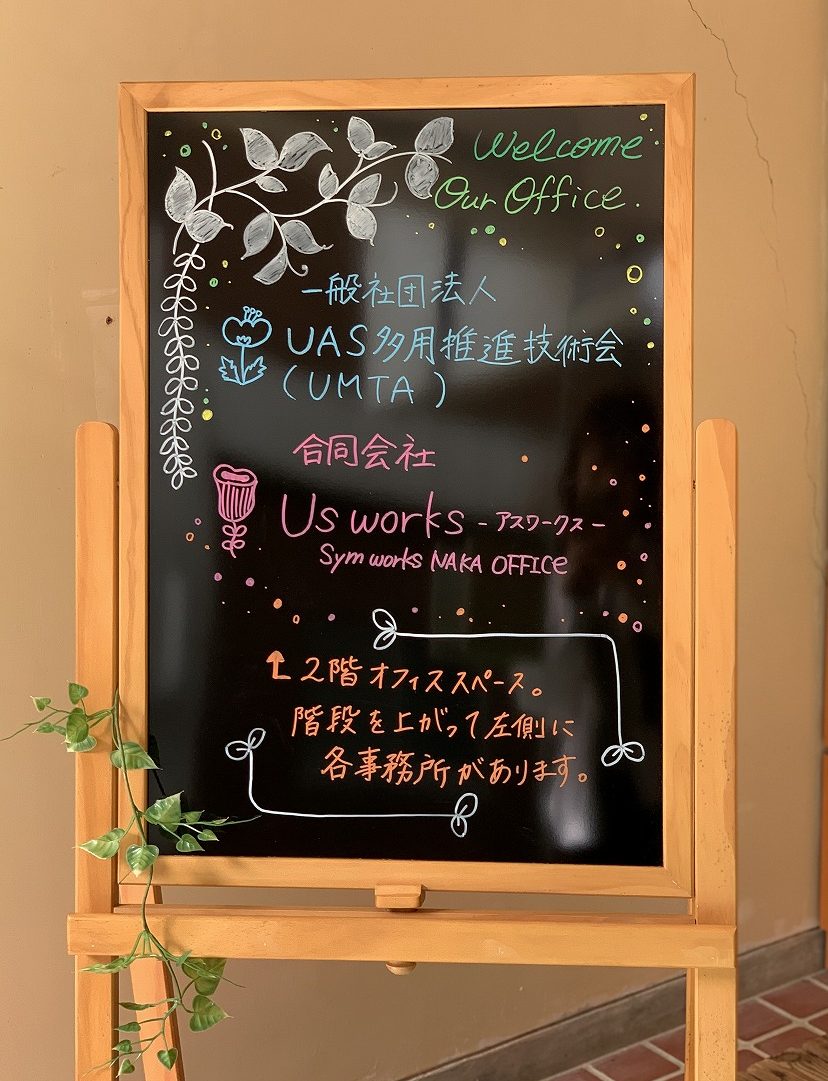 Welcome
Our Office.
一般社団法人
UAS多用推進技術会
(UMTA)
合同会社
Us works -アスワークス-
Sym works NAKA OFFICE
↰ 2階オフィススペース。
階段を上がって左側に
各事務所があります。